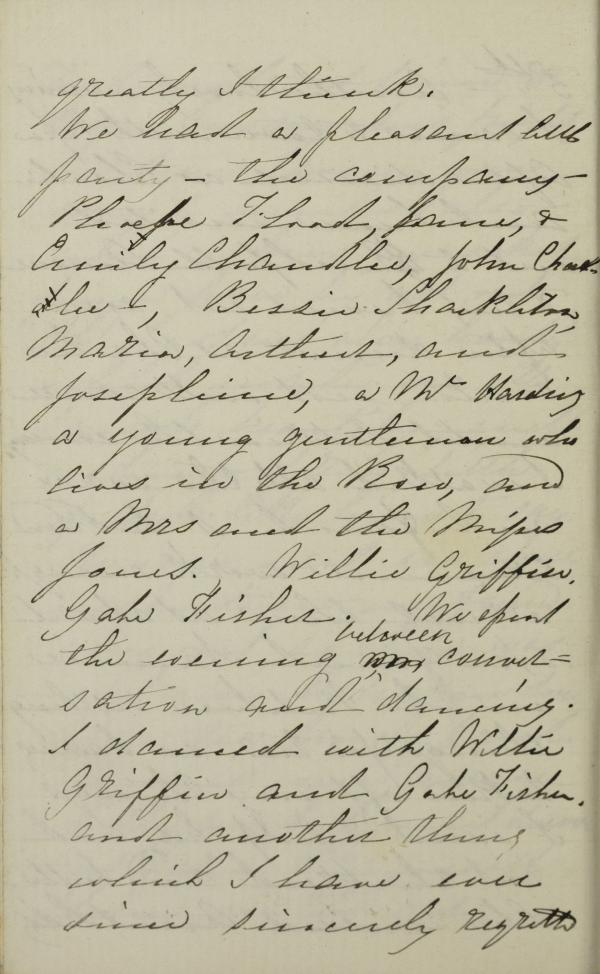 greatly I think.
We had a pleasant little
party – the company –
Phoebe Flood, Jane, &
Emily Chandlee, John Chand-
lee –, Bessie Shackleton
Maria, Arthur, and
Josephine, a Mr Harding
a young gentleman who
lives in the Row, and
a Mrs and the Misses
Jones. Willie Griffin,
Gabe Fisher. We spent
the evening between conver=
sation and dancing.
I danced with Willie
Griffin and Gabe Fisher.
and another thing
which I have ever
since sincerely regrett